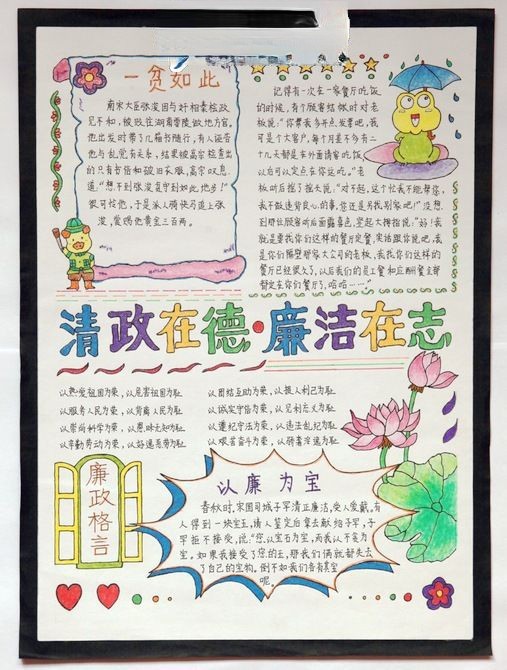 一贫如此
南宋大臣张浚因与奸相秦桧政
见不和，被贬往湖南零陵做地方官。
他出发时带了几箱书随行，有人诬告
他与乱党有关系，结果被高宗检查出
的只有书信和破旧衣服，高宗叹息
道："想不到张浚竟守到如此地步！"
很可怜他，于是派人骑快马追上张
浚，赏赐他黄金三百两。
记得有一次在一家餐厅吃饭
的时候，有个顾客结帐时对老
板说："你帮我多开点发票吧，我
可是个大客户，每个月差不多有二
十九天都是在外面请客吃饭
以后可以定点在你这吃。"老
板听后摇了摇头说："对不起，这个忙我不能帮你，
我不做违背良心的事，您还是另找别家吧！"没想
到那位顾客听后面露喜色，竖起大拇指说："好！我
就是要找你们这样的餐厅定餐，实话跟你说吧，我
是你们隔壁那家大公司的老板，我找你们这样的
餐厅已经很久了，以后我们的员工餐和应酬餐全部
都定在你们餐厅了，哈哈……"
清政在德·廉洁在志
以热爱祖国为荣，以危害祖国为耻
以服务人民为荣，以背离人民为耻
以崇尚科学为荣，以愚昧无知为耻
以辛勤劳动为荣，以好逸恶劳为耻
以团结互助为荣，以损人利己为耻
以诚实守信为荣，以见利忘义为耻
以遵纪守法为荣，以违法乱纪为耻
以艰苦奋斗为荣，以骄奢淫逸为耻
廉政格言
以廉为宝
春秋时，宋国司城子罕清正廉洁，受人爱戴。有
人得到一块宝玉，请人鉴定后拿去献给子罕，子
罕拒不接受，说："您以宝石为宝，而我以不贪为
宝。如果我接受了您的玉，那我们俩就都失去
了自己的宝物。倒不如我们各有其宝
呢。